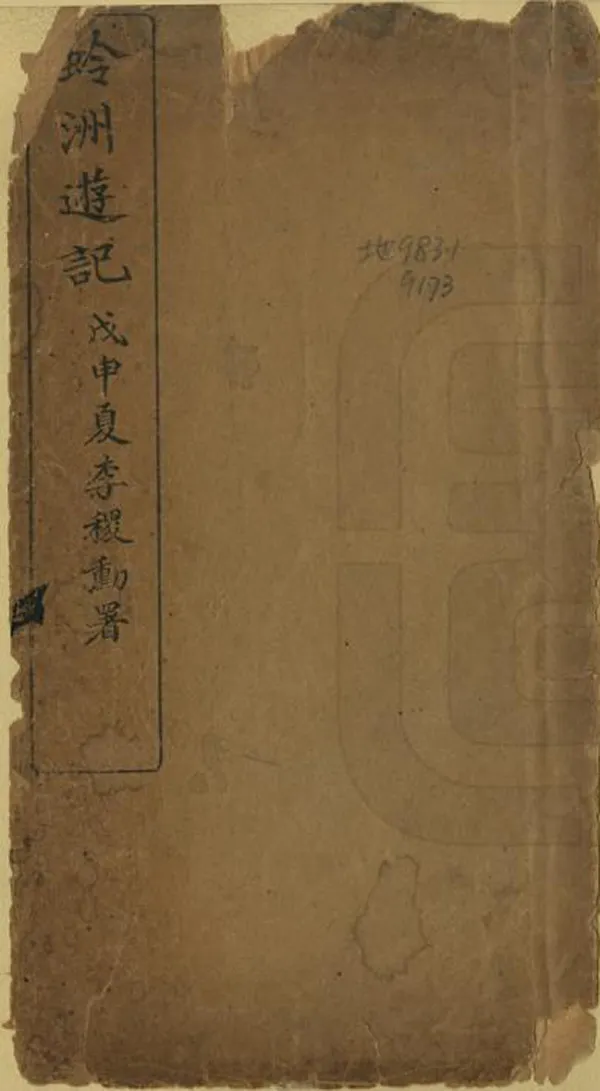 蛉洲遊記
戊申夏李稷勳署
地9831
9173